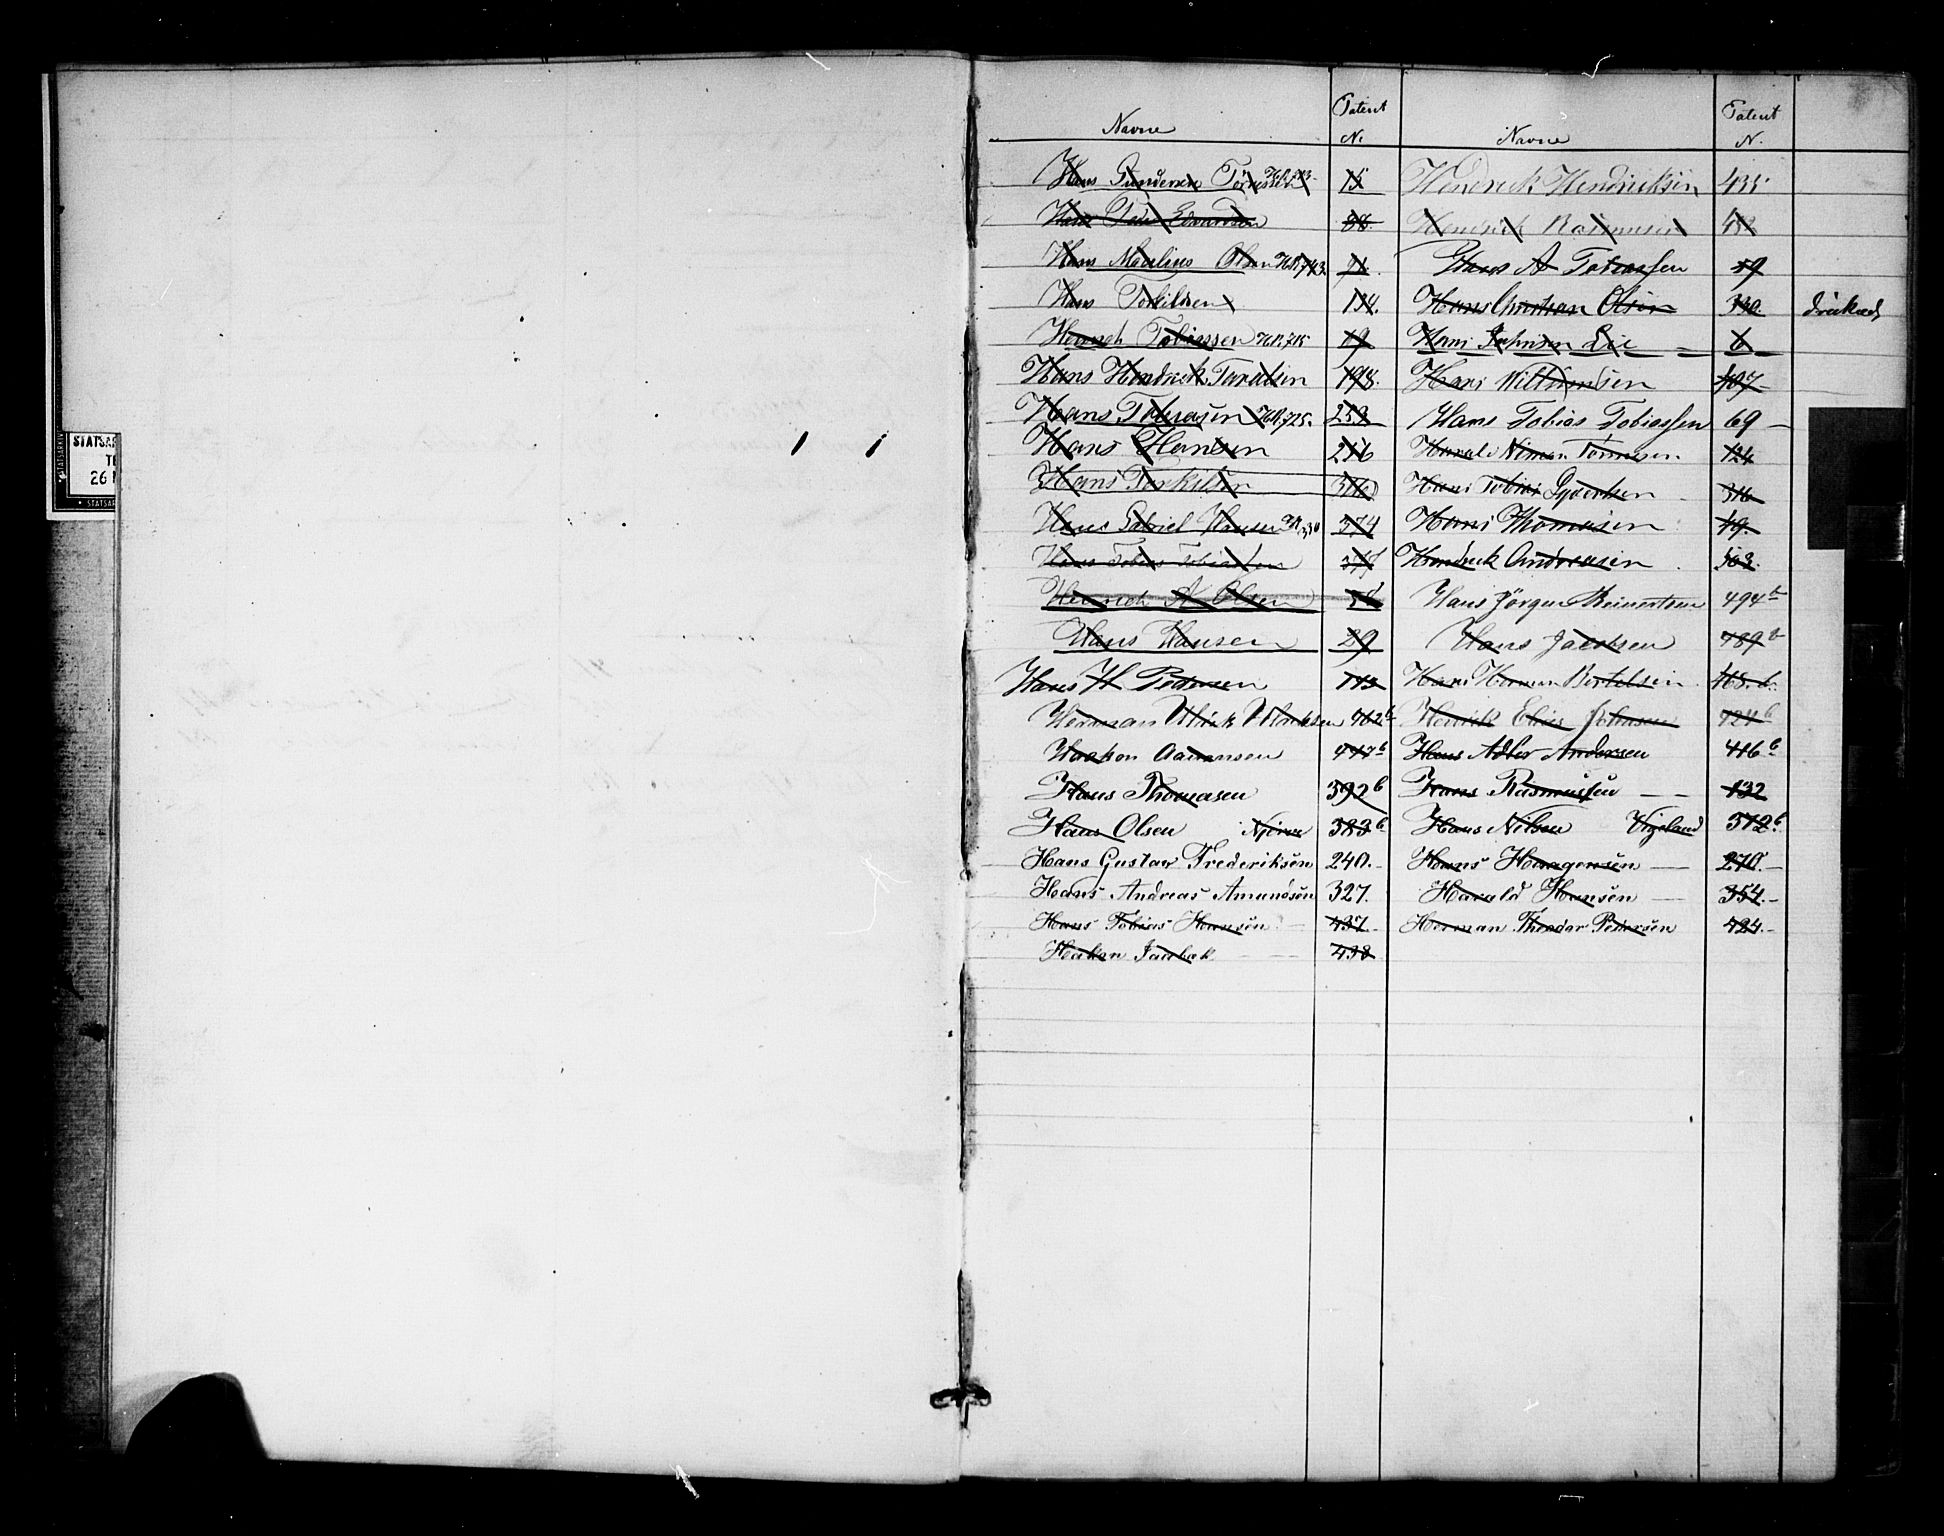 STATSAR
26
STATSAR
Navne Patent N. Navne Patent N.
Hans Gundersen Tönnessen 15 Hendrick Hendricksen 435
Hans Edvardsen 88. Hendrick Rasmusen
Hans Maulius Olsen 21. Hans A Tobiassen 59
Hans Torkildsen 134. Hans Christian Olsen 330.
Tobiassen 19 Hans Johnsen Lie 6
Hans Hendrick Taraldsen 198. Hans Willumsen 107
Hans Tobiasen 725. 259 Hans Tobias Tobiassen 69
Hans Hansen 216 Harald Tönnesen 124
Hans Torkilsen 316 Hans Tobias Gydertsen 316
Hans Gabriel Hansen 374 Hans Thomasen 49.
Hans Tobias Tobiassen Hendrick Andreasen 503.
Heinrich A Olsen Hans Jörgen Reinertsen 494 b
Hans Hansen 29 Hans Jacobsen 489 b
Hans H Pedersen 113 Hans Herman Bertelsen 465. b.
Herman Ulrick Ulricksen 462 b Henrik Elias Johnsen 424 b
Haakon Aamansen 447 b Hans Adler Andersen 416 b
Hans Thomasen 392 b Hans Rasmussen 132
Hans Olsen 383 b Hans Nilsen Vigeland 372 b.
Hans Gustav Frederiksen 240. Hans Haagensen 270.
Hans Andreas Amundsen 327. Harald Hansen 354.
Hans Tobias Hansen 437. Herman Theodor Pedersen 424.
Hakon Jaabæk 438